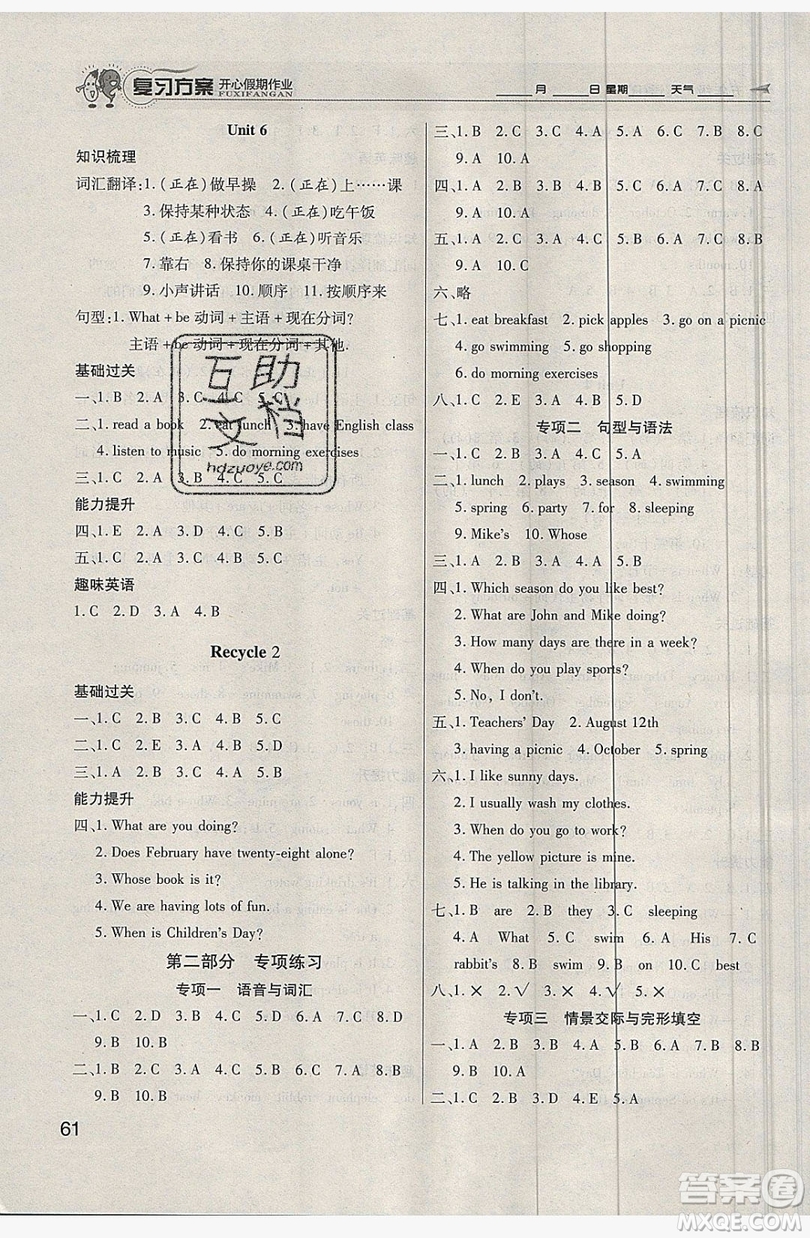 复习方案 开心假期作业
FUXIFANGAN
月 日 星期 天气
Unit 6
知识梳理
词汇翻译:1.(正在)做早操 2.(正在)上……课
3.保持某种状态 4.(正在)吃午饭
5.(正在)看书 6.(正在)听音乐
7.靠右 8.保持你的课桌干净
9.小声讲话 10.顺序 11.按顺序来
句型:1. What+be 动词+主语+现在分词?
主语+be 动词+现在分词+其他.
基础过关
一、1. B 2. A 3. A 4. C 5. A
二、1. read a book 2. eat lunch 3. have English class
4. listen to music 5. do morning exercises
三、1. C 2. A 3. B 4. C 5. C
能力提升
四、1. E 2. A 3. D 4. C 5. B
五、1. C 2. A 3. A 4. B 5. C
趣味英语
1. C 2. D 3. A 4. B
Recycle 2
基础过关
一、1. C 2. D 3. C 4. B 5. C
二、1. C 2. A 3. A 4. B 5. D
三、1. C 2. A 3. B 4. B 5. C
能力提升
四、1. What are you doing?
2. Does February have twenty-eight alone?
3. Whose book is it?
4. We are having lots of fun.
5. When is Children's Day?
第二部分 专项练习
专项一 语音与词汇
一、1. C 2. C 3. D 4. B 5. C 6. A 7. C 8. D
9. B 10. B
二、1. C 2. B 3. D 4. D 5. B 6. A 7. A 8. D
9. B 10. B
61
三、1. B 2. C 3. A 4. A 5. C 6. B 7. C 8. B
9. A 10. A
四、1. B 2. C 3. D 4. B 5. A 6. B 7. D 8. C
9. A 10. B
五、1. B 2. C 3. A 4. B 5. C 6. A 7. B 8. C
9. A 10. C
六、略
七、1. eat breakfast 2. pick apples 3. go on a picnic
4. go swimming 5. go shopping
6. do morning exercises
八、1. C 2. E 3. A 4. B 5. D
专项二 句型与语法
一、1. A 2. B 3. B 4. C 5. A
二、1. lunch 2. plays 3. season 4. swimming
5. spring 6. party 7. for 8. sleeping
9. Mike's 10. Whose
三、1. D 2. A 3. B 4. C 5. A
四、1. Which season do you like best?
2. What are John and Mike doing?
3. How many days are there in a week?
4. When do you play sports?
5. No, I don't.
五、1. Teachers' Day 2. August 12th
3. having a picnic 4. October 5. spring
六、1. I like sunny days.
2. I usually wash my clothes.
3. When do you go to work?
4. The yellow picture is mine.
5. He is talking in the library.
七、1. B are 2. B they 3. C sleeping
4. A What 5. C swim 6. A His 7. C
rabbit's 8. B do 9. B is 10. C best
八、1. × 2. √ 3. √ 4. × 5. √
专项三 情景交际与完形填空
一、1. C 2. B 3. A 4. B 5. C 6. A 7. B 8. B
9. B 10. C
二、1. C 2. B 3. D 4. E 5. A
互助
文档
hdzuoye.com
答案圈
MXQE.COM